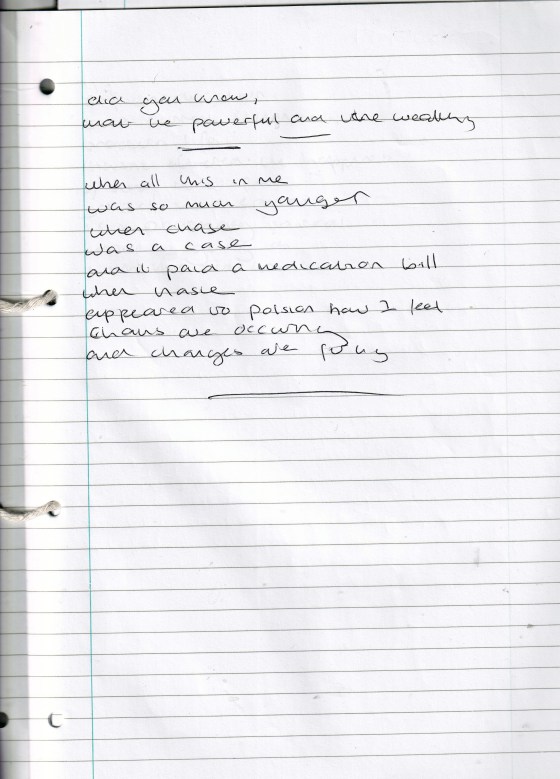 did you know,
that the powerful and the wealthy
when all this in me
was so much younger
when chase
was a case
and it paid a medication bill
when haste
appeared to poision how I feel
are occuring
and changes are